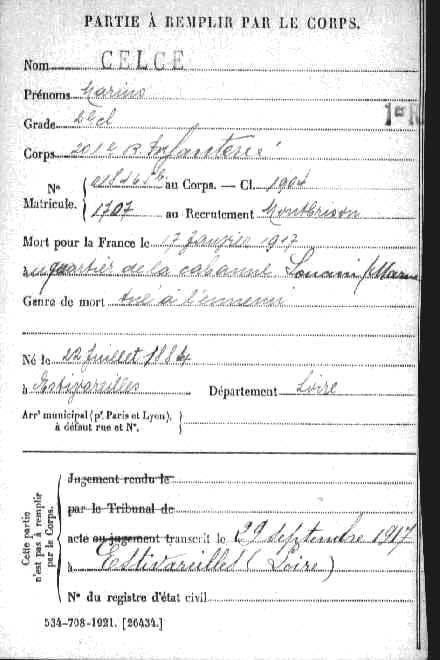 PARTIE À REMPLIR PAR LE CORPS.
Nom CELCE
Prénoms Marius
Grade 2e cl
Corps 201e R. Infanterie
N° Matricule. au Corps. — Cl. 1904
1707 au Recrutement Montbrison
Mort pour la France le 17 Janvier 1917
au quartier de la cabanne Marne
Genre de mort tué à l'ennemi
Né le 22 Juillet 1884
à Estivareilles Département Loire
Arrt municipal (pr Paris et Lyon),
à défaut rue et N°.
Cette partie n'est pas à remplir par le Corps.
Jugement rendu le
par le Tribunal de
acte ou jugement transcrit le 29 septembre 1917
à Estivareilles (Loire)
N° du registre d'état civil
534-708-1921. [26434.]